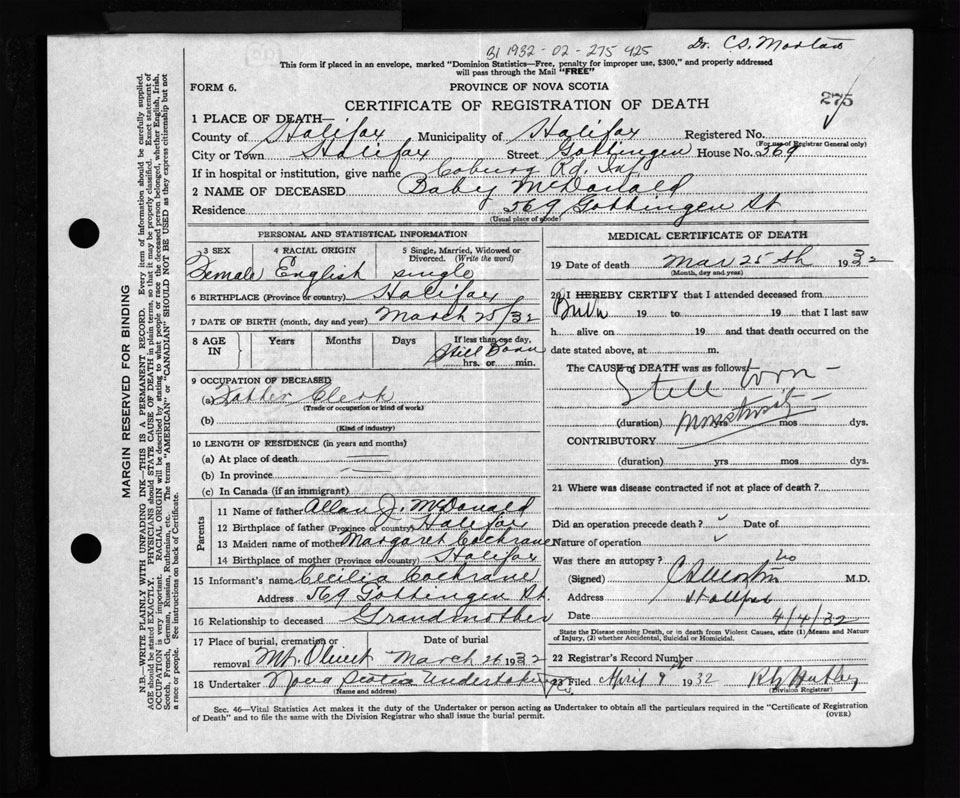 B1 1932-02-275 425
Dr. C.S. Morton
This form if placed in an envelope, marked "Dominion Statistics—Free, penalty for improper use, $300," and properly addressed
will pass through the Mail "FREE"
FORM 6.
PROVINCE OF NOVA SCOTIA
CERTIFICATE OF REGISTRATION OF DEATH
275
1 PLACE OF DEATH—
County of Halifax Municipality of Halifax Registered No.
(For use of Registrar General only)
City or Town Halifax Street Gottingen House No. 569
If in hospital or institution, give name Coburg Rd. Inf
2 NAME OF DECEASED Baby McDonald
Residence 569 Gottingen St
(Usual place of abode)
PERSONAL AND STATISTICAL INFORMATION
3 SEX 4 RACIAL ORIGIN 5 Single, Married, Widowed or Divorced. (Write the word)
Female English single
6 BIRTHPLACE (Province or country) Halifax
7 DATE OF BIRTH (month, day and year) March 25/32
8 AGE IN Years Months Days If less than one day,
Still Born
hrs. or min.
9 OCCUPATION OF DECEASED
(a) Father Clerk
(Trade or occupation or kind of work)
(b)
(Kind of industry)
10 LENGTH OF RESIDENCE (in years and months)
(a) At place of death
(b) In province
(c) In Canada (if an immigrant)
Parents
11 Name of father Allan J. McDonald
12 Birthplace of father (Province or country) Halifax
13 Maiden name of mother Margaret Cochrane
14 Birthplace of mother (Province or country) Halifax
15 Informant's name Cecilia Cochrane
Address 569 Gottingen St.
16 Relationship to deceased Grandmother
17 Place of burial, cremation or removal Mt. Olivet Date of burial March 26 1932
18 Undertaker Nova Scotia Undertaking Co.
(Name and address)
MEDICAL CERTIFICATE OF DEATH
19 Date of death Mar 25th 1932
(Month, day and year)
20 I HEREBY CERTIFY that I attended deceased from
Born 19 to 19 that I last saw
h alive on 19 and that death occurred on the
date stated above, at m.
The CAUSE of DEATH was as follows:—
Still born —
(duration) monstrosity yrs mos dys.
CONTRIBUTORY
(duration) yrs mos dys.
21 Where was disease contracted if not at place of death?
Did an operation precede death? Date of
Nature of operation
Was there an autopsy? no
(Signed) CS Morton M.D.
Address Halifax
Date 4/4/32
State the Disease causing Death, or in death from Violent Causes, state (1) Means and Nature
of Injury, (2) whether Accidental, Suicidal or Homicidal.
22 Registrar's Record Number
23 Filed April 9th 1932
(Division Registrar)
Sec. 46—Vital Statistics Act makes it the duty of the Undertaker or person acting as Undertaker to obtain all the particulars required in the "Certificate of Registration
of Death" and to file the same with the Division Registrar who shall issue the burial permit.
(OVER)
MARGIN RESERVED FOR BINDING
N.B.—WRITE PLAINLY WITH UNFADING INK—THIS IS A PERMANENT RECORD. Every item of information should be carefully supplied.
AGE should be stated EXACTLY. PHYSICIANS should STATE CAUSE OF DEATH in plain terms, so that it may be properly classified. Exact statement of
OCCUPATION is very important. RACIAL ORIGIN will be described by stating to what people or race the deceased person belonged, whether English, Irish,
Scotch, French, German, Russian, Ruthenian, etc. The terms "AMERICAN" or "CANADIAN" SHOULD NOT BE USED as they express citizenship but not
a race or people. See instructions on back of Certificate.